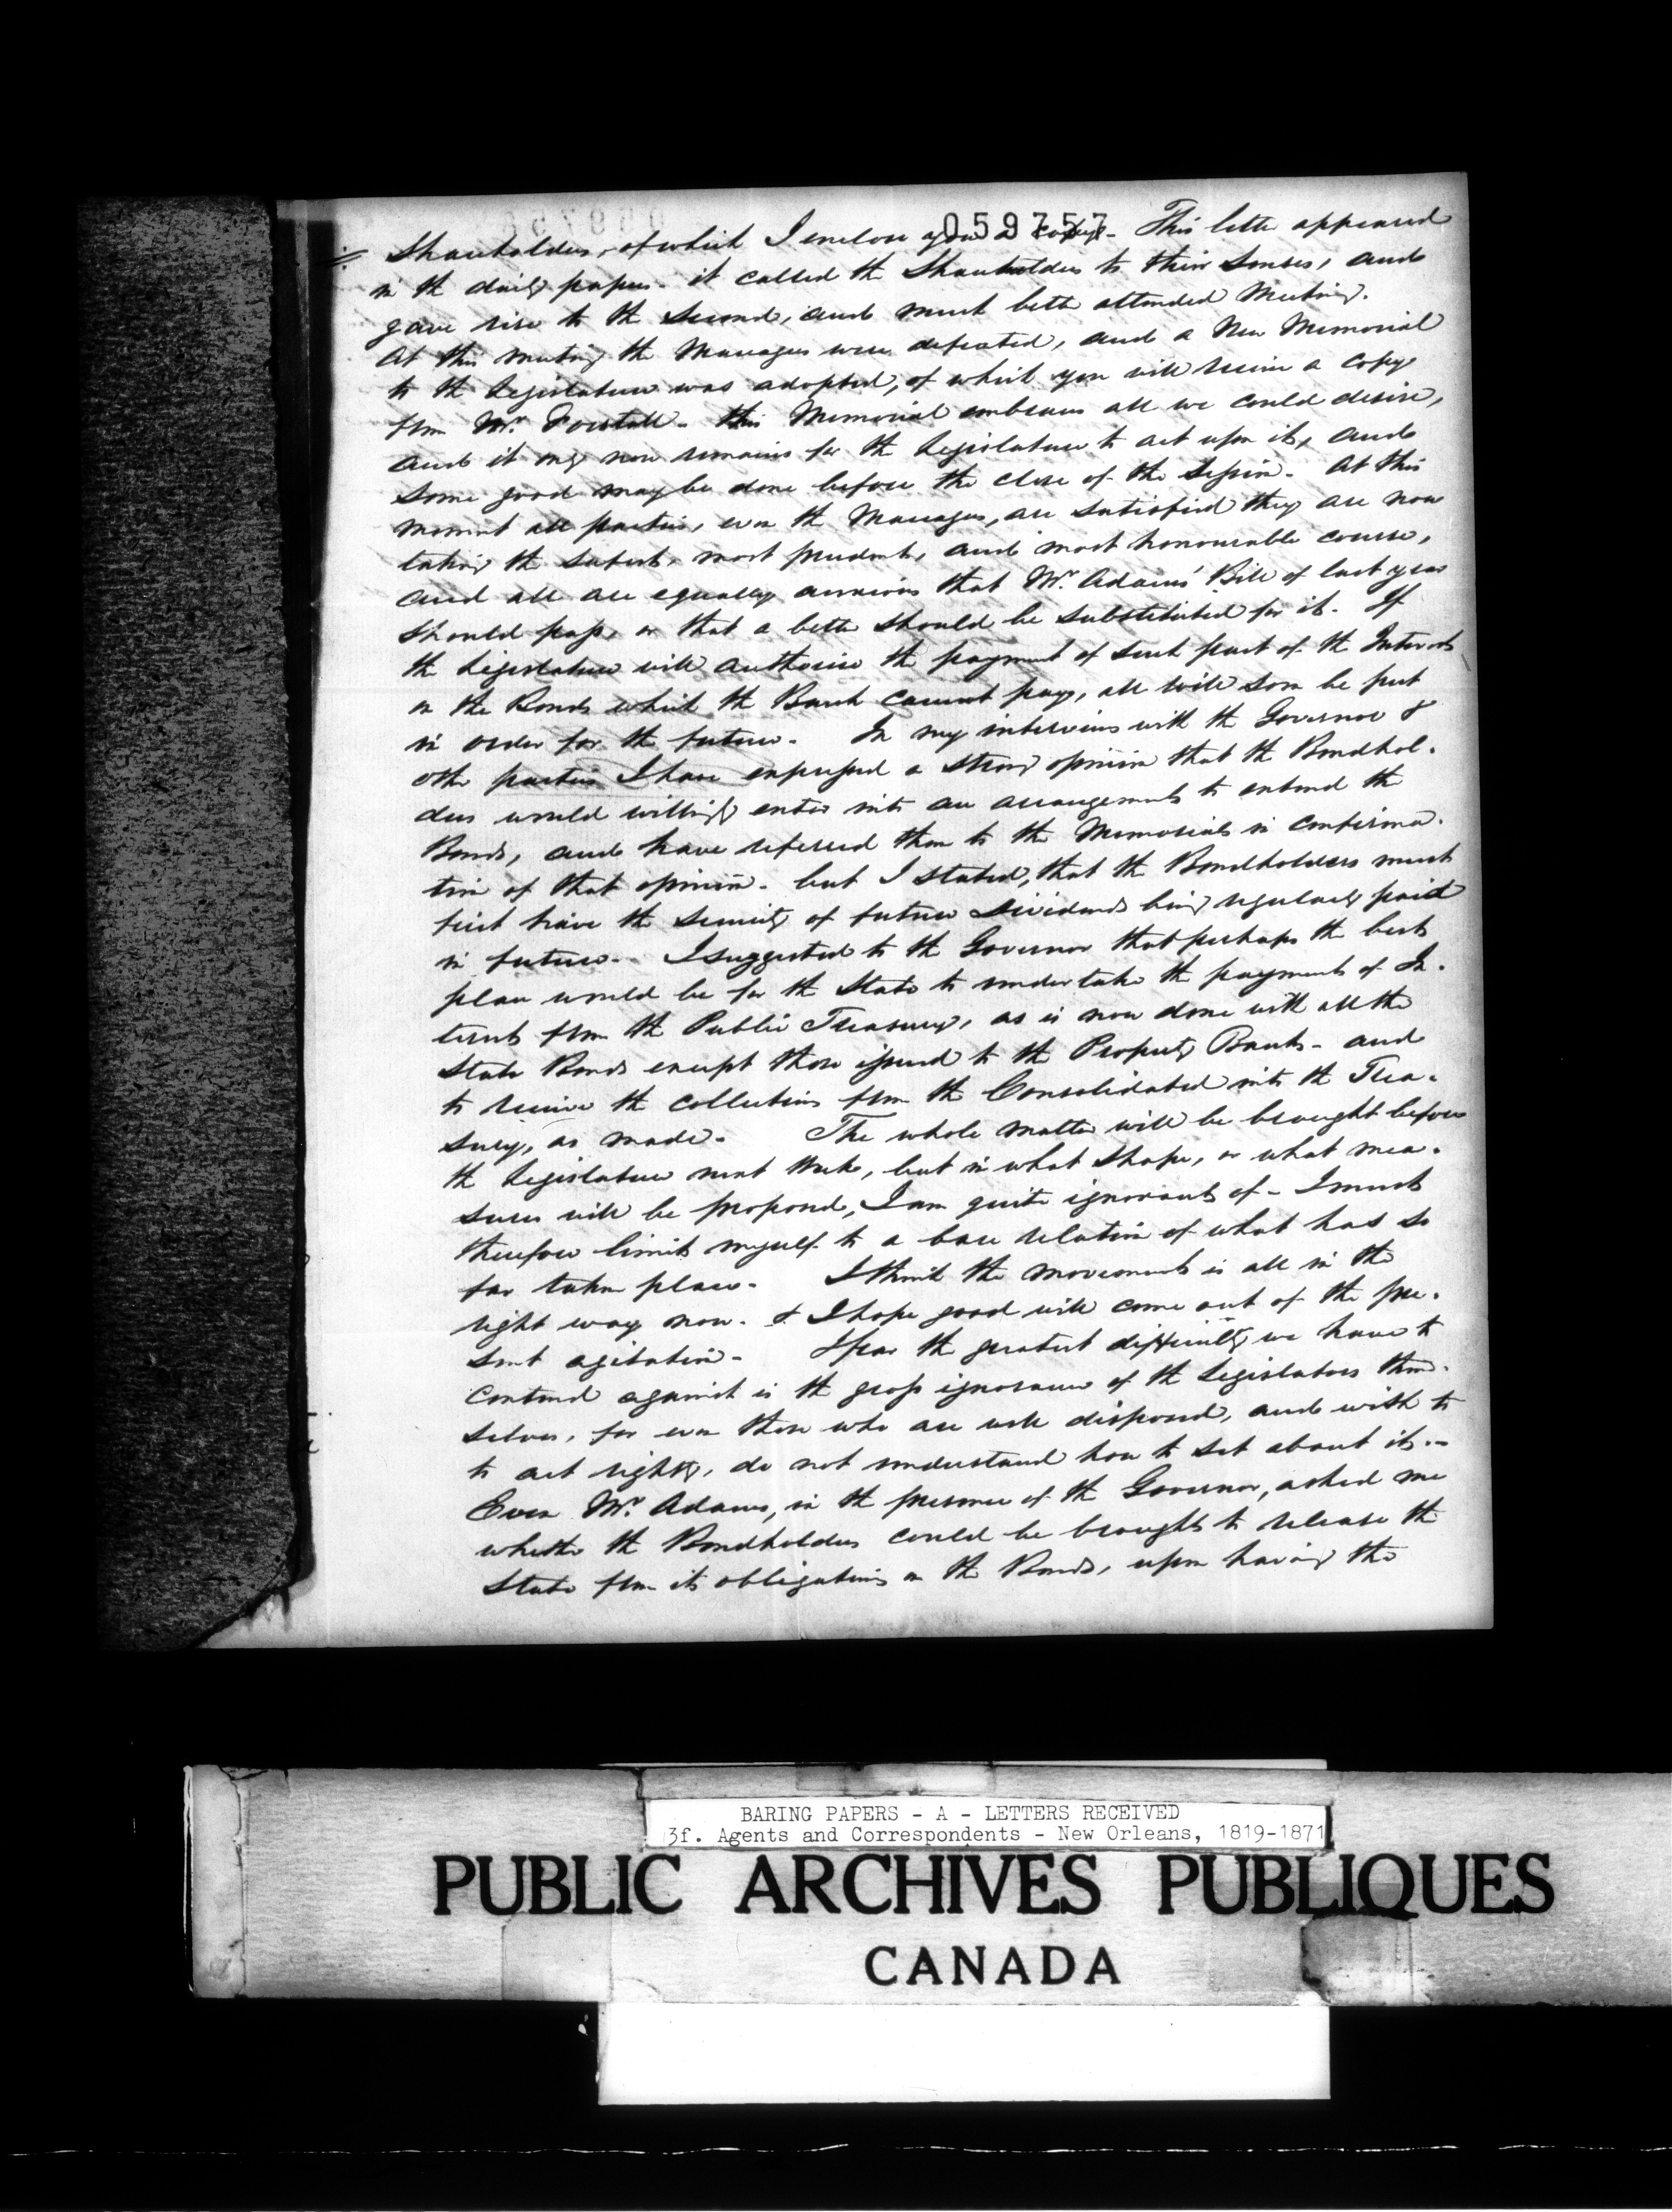 059757
Shareholders, of which I enclose you a copy - This letter appeared
in the daily papers - it called the Shareholders to their senses, and
gave rise to the second, and much better attended Meeting.
At this meeting the Managers were defeated, and a New Memorial
to the Legislature was adopted, of which you will receive a copy
from Mr. Forstall - this Memorial embraces all we could desire,
and it only now remains for the Legislature to act upon it, and
some good may be done before the close of the Session - At this
moment all parties, even the Managers, are satisfied they are now
taking the safest, most prudent, and most honourable course,
and all are equally anxious that Mr. Adams' Bill of last year
should pass, or that a better should be substituted for it - If
the Legislature will authorise the payment of such part of the Interest
on the Bonds which the Bank cannot pay, all will soon be put
in order for the future - In my interviews with the Governor &
other parties I have expressed a strong opinion that the Bondhol-
ders would willingly enter into an arrangement to extend the
Bonds, and have referred them to the Memorials in confirma-
tion of that opinion - but I stated, that the Bondholders must
first have the security of future Dividends being regularly paid
in future - I suggested to the Governor that perhaps the best
plan would be for the State to undertake the payment of In-
terest from the Public Treasury, as is now done with all the
State Bonds except those issued to the Property Banks - and
to receive the collections from the Consolidated into the Trea-
sury, as made - The whole matter will be brought before
the Legislature next Week, but in what shape, or what mea-
sures will be proposed, I am quite ignorant of - I must
therefore limit myself to a bare relation of what has so
far taken place - I think the movement is all in the
right way now - & I hope good will come out of the pre-
sent agitation - I fear the greatest difficulty we have to
contend against is the gross ignorance of the Legislators them-
selves, for even those who are well disposed, and wish to
to act rightly, do not understand how to set about it -
Even Mr. Adams, in the presence of the Governor, asked me
whether the Bondholders could be brought to release the
State from its obligations on the Bonds, upon having the
BARING PAPERS - A - LETTERS RECEIVED
3f. Agents and Correspondents - New Orleans, 1819-1871
PUBLIC ARCHIVES PUBLIQUES
CANADA